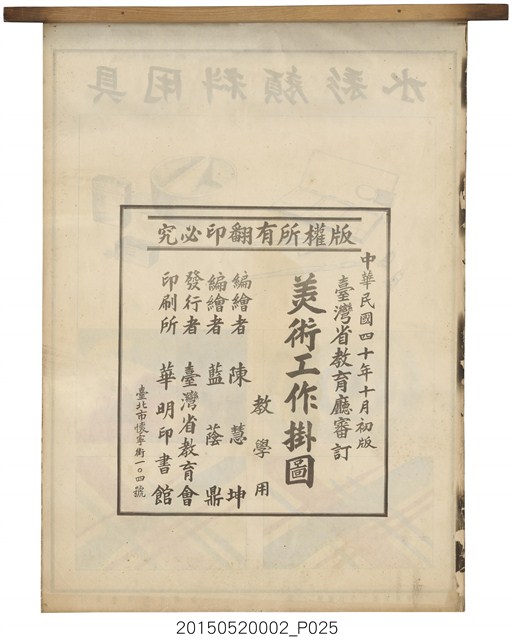 水彩顏料用具
版權所有翻印必究
中華民國四十年十月初版
臺灣省教育廳審訂
美術工作掛圖
教學用
編繪者 陳慧坤
編繪者 藍蔭鼎
發行者 臺灣省教育會
印刷所 華明印書館
臺北市懷寧街一〇四號
20150520002_P025